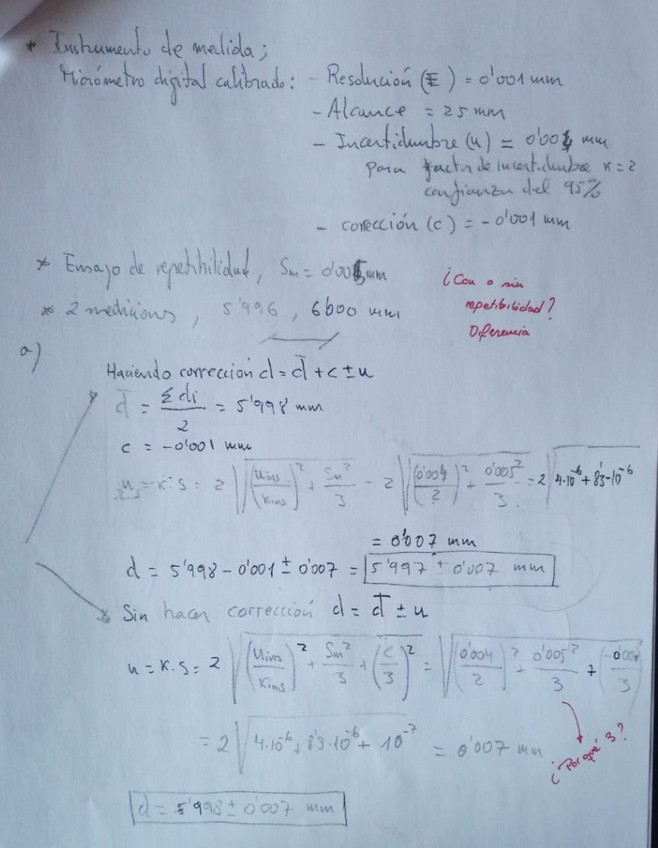 * Instrumento de medida;
Micrómetro digital calibrado: - Resolución (E) = 0'001 mm
- Alcance = 25 mm
- Incertidumbre (u) = 0'004 mm
para factor de incertidumbre k=2
confianza del 95%
- corrección (c) = -0'001 mm
* Ensayo de repetibilidad, Sm = 0'005mm
* 2 medicions, 5'996, 6'000 mm
¿Con o sin
repetibilidad?
Diferencia
a)
Haciendo corrección d = d̄ + c ± u
d̄ = Σdi/2 = 5'998 mm
c = -0'001 mm
u = k·s = 2 √((uins/kins)² + Sm²/3) = 2 √((0'004/2)² + 0'005²/3) = 2 √(4·10⁻⁶ + 8'3·10⁻⁶)
= 0'007 mm
d = 5'998 - 0'001 ± 0'007 = 5'997 ± 0'007 mm
Sin hacer corrección d = d̄ ± u
u = k·s = 2 √((uins/kins)² + Sm²/3 + (c/3)²) = √((0'004/2)² + 0'005²/3 + (-0'001/3)
= 2 √(4·10⁻⁶ + 8'3·10⁻⁶ + 10⁻⁷) = 0'007 mm
¿Por qué 3?
d = 5'998 ± 0'007 mm